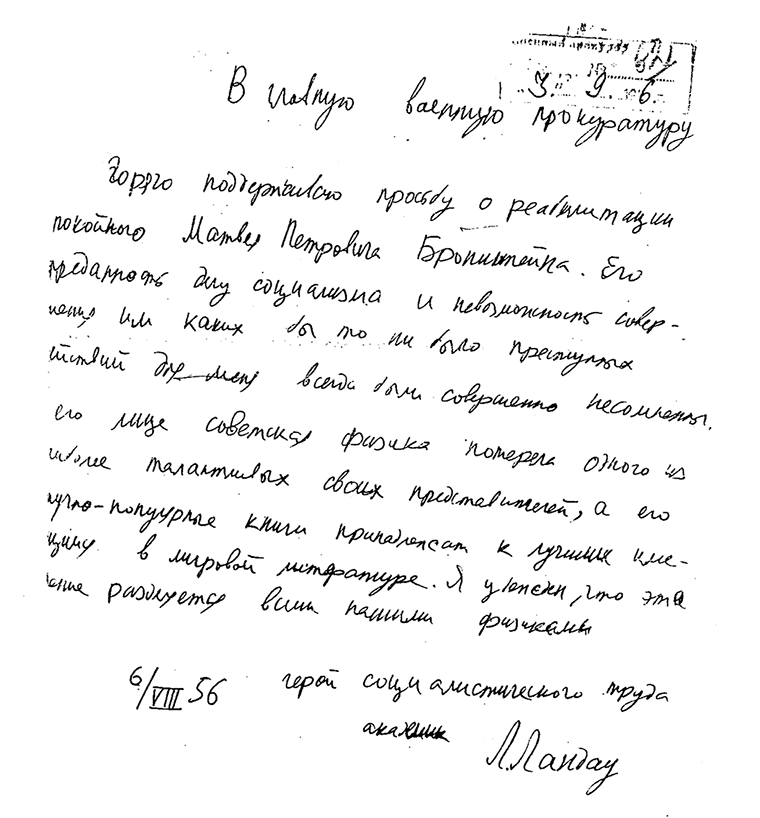 3. 9. 6
В главную военную прокуратуру
Горячо поддерживаю просьбу о реабилитации
покойного Матвея Петровича Бронштейна. Его
преданность делу социализма и невозможность совер-
шения им каких бы то ни было преступных
йствий для меня всегда были совершенно несомненны.
его лице советская физика потеряла одного из
иболее талантливых своих представителей, а его
учно-популярные книги принадлежат к лучшим име-
ющимся в мировой литературе. Я уверен, что эта
ние разделяется всеми нашими физиками
6/VIII 56 герой социалистического труда
академик Л. Ландау